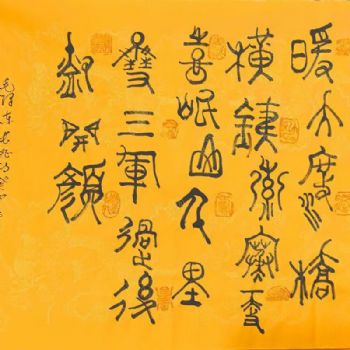 暖大渡橋
橫鐵索寒更
喜岷山千里
雪三軍過後
盡開顏
毛澤東